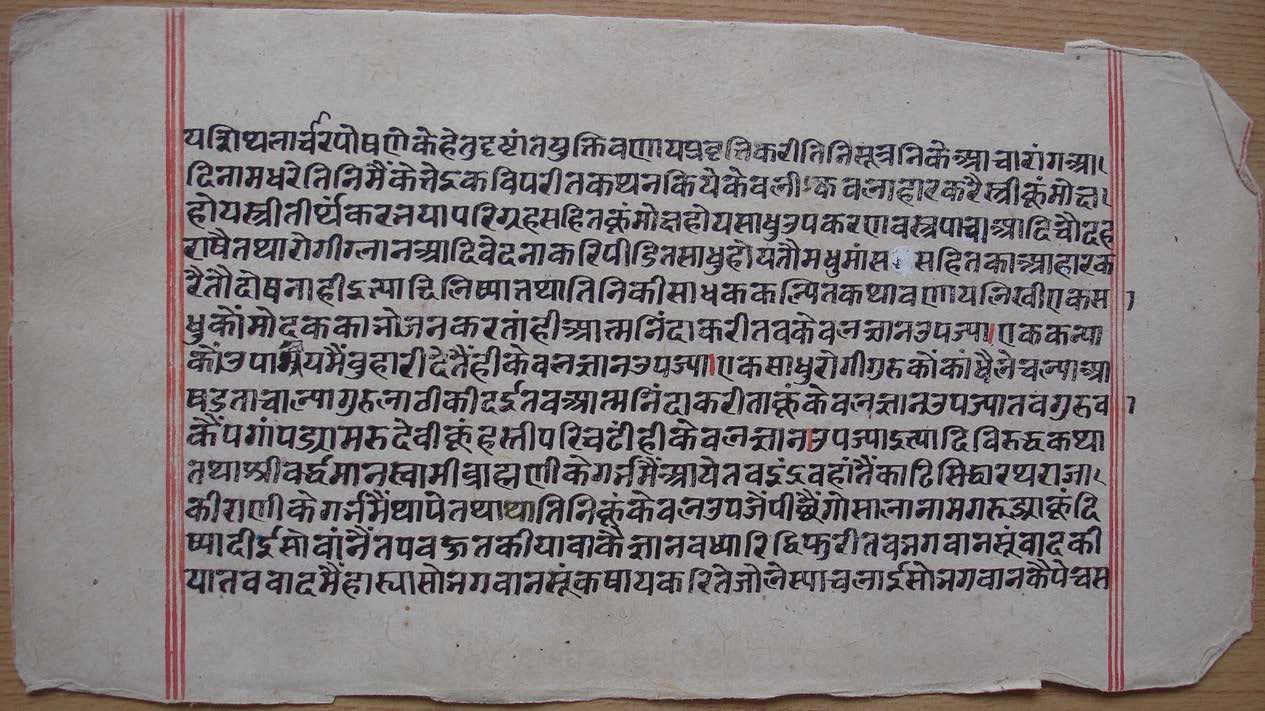 यशिथलाचारपोषणेकेहेतुदृष्टांतयुक्तिवणायप्रवृत्तिकरीतिनिसूत्रनिकेआचारांगआ
दिनामधरेतिनिमैंकेतेइकविपरीतकथनकियेकेवलीकवलाहारकरैस्त्रीकूंमोक्ष
होयस्त्रीतीर्थंकरनयापरिग्रहसहितकूंमोक्षहोयसाधुउपकरणवस्त्रपात्राआदिचौदह
राषैतथारोगीग्लानआदिवेदनाकरिपीडितसाधुहोयतौमधुमांससहितकाआहारक
रैतौदोषनाहीइत्यादिलिष्यातथातिनिकीसाधककल्पितकथावणायलिखीएकस
धुकौंमोदककाभोजनकरतांहीआत्मनिंदाकरीतवकेवलज्ञानउपज्याएककन्या
कौंउपाश्रयमैंवुहारीदेतैंहीकेवलज्ञानउपज्याएकसाधुरोगीगुरुकोंकांधैलेचल्याआ
षडताचाल्यागुरुलाठीकीदईतवआत्मनिंदाकरीताकूंकेवलज्ञानउपज्यातवगुरुव
कैंपगांपड्यामरुदेवीकूंहस्तीपरिचढीहीकेवलज्ञानउपज्याइत्यादिविरुद्धकथा
तथाश्रीवर्द्धमानस्वामीब्राह्मणीकेगर्भमैंआयेतवइंद्रवहांतैंकाटिसिद्धारथराजा
कीराणीकेगर्भमैंथापेतथातिनिकूंकेवलउपजैंपीछैंगोसालानामगरुड्याकूंदि
ष्यादीईसोवांनैंतपवहुतकीयावाकैज्ञानवध्यारिद्धिफुरीतवभगवानसूंवादकी
यातववादमैंहास्यासोभगवानसूंकषायकरितेजोलेस्याचलाईसोभगवानकैपेचस